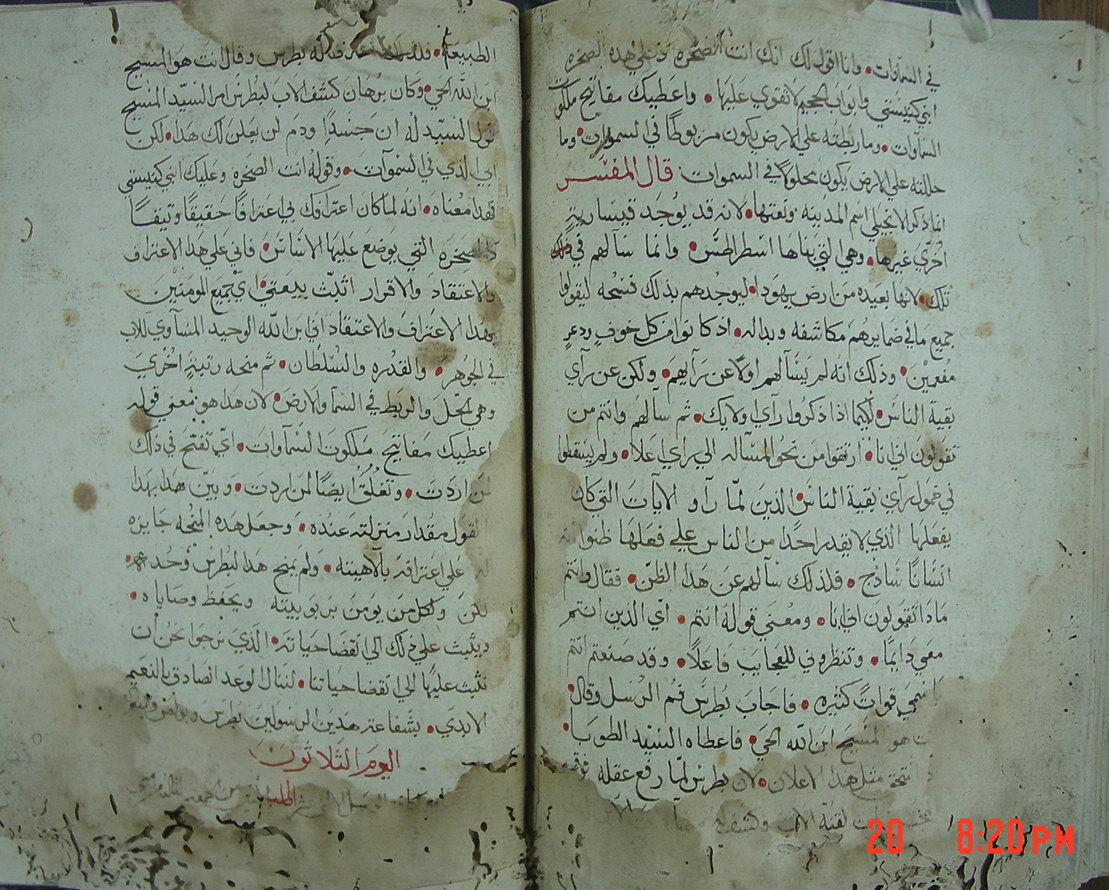 في السماوات • وانا اقول لك انك انت الصخره وعلي هذه الصخره
ابني كنيستي وابواب الجحيم لا تقوي عليها • واعطيك مفاتيح ملكوت
السماوات • وما ربطته علي الارض يكون مربوطا في السموات • وما
حللته علي الارض يكون محلولا في السموات قال المفسر
انما ذكر الانجيلي اسم المدينه ونعتها • لانه قد يوجد قيساريه
اخري غيرها • وهي التي بناها اسطراطس • وانما سالهم في ذلك
تلك • لانها بعيده من ارض يهودا • ليوجدهم بذلك فسحه ليقولوا
جميع ما في ضمايرهم مكاشفه وبداله • اذ كانوا من كل خوف وذعر
مفعين • وذلك انه لم يسالهم اولا عن رآيهم • ولكن عن رآي
بقية الناس • لكيما اذا ذكروا رآي اولايك • ثم سالهم وانتم من
تقولون اني انا • ارتقوا من نحو المسآله الي رآي اعلا • ولم يسقطوا
في خمول رآي بقية الناس الذين لما رآو الايات التي كان
يفعلها الذي لا يقدر احدا من الناس علي فعلها ظنوا انه
انسانا ساذج • فلذلك سآلهم عن هذا الظن • فقال وانتم
ماذا تقولون اني انا • ومعني قوله انتم • اي الذين انتم
معي دايما • وتنظروني للعجايب فاعلا • وقد صنعتم انتم
باسمي قوات كثيره • فاجاب بطرس فم الرسل وقال •
انت هو المسيح ابن الله الحي • فاعطاه السيد الطوبا •
مثل هذا الاعلان • لان بطرس لما رفع عقله فوق
الطبيعه • فلذلك قال له بطرس وقال انت هو المسيح
ابن الله الحي • وكان برهان كشف الاب لبطرس امر السيد المسيح
قول السيد له ان جسدا ودم لن يعلن لك هذا • لكن
ابي الذي في السموآت • وقوله انت الصخره وعليك ابني كنيستي
فهذا معناه • انه لما كان اعترافك بي اعترافا حقيقا وثيقا
كالصخره التي يوضع عليها الاساس • فاني علي هذا الاعتراف
والاعتقاد والاقرار اثبت بيعتي • اي جميع المومنين
بهذا الاعتراف والاعتقاد اني ابن الله الوحيد المساوي للاب
في الجوهر • والقدره والسلطان • ثم منحه رتبة اخري
وهي الحل والربط في السمآ والارض • لان هذا هو معني قوله
اعطيك مفاتيح ملكوت السمآوات • اي تفتح في ذلك
لمن اردت • وتغلق ايضا لمن اردت • وبين هذا بهذا
القول مقدار منزلته عنده • وجعل هذه المنحه جايزه
له علي اعترافه بآلاهيته • ولم يمنح هذا لبطرس وحده •
لكن ولكل من يومن بربوبيته ويحفظ وصاياه •
ويثبت علي ذلك الي انقضا حياته • الذي نرجوا نحن ان
نثبت عليها الي انقضا حياتنا • لننال الوعد الصادق بالنعيم
الابدي • بشفاعة هذين الرسولين بطرس وبولس
اليوم الثلاثون